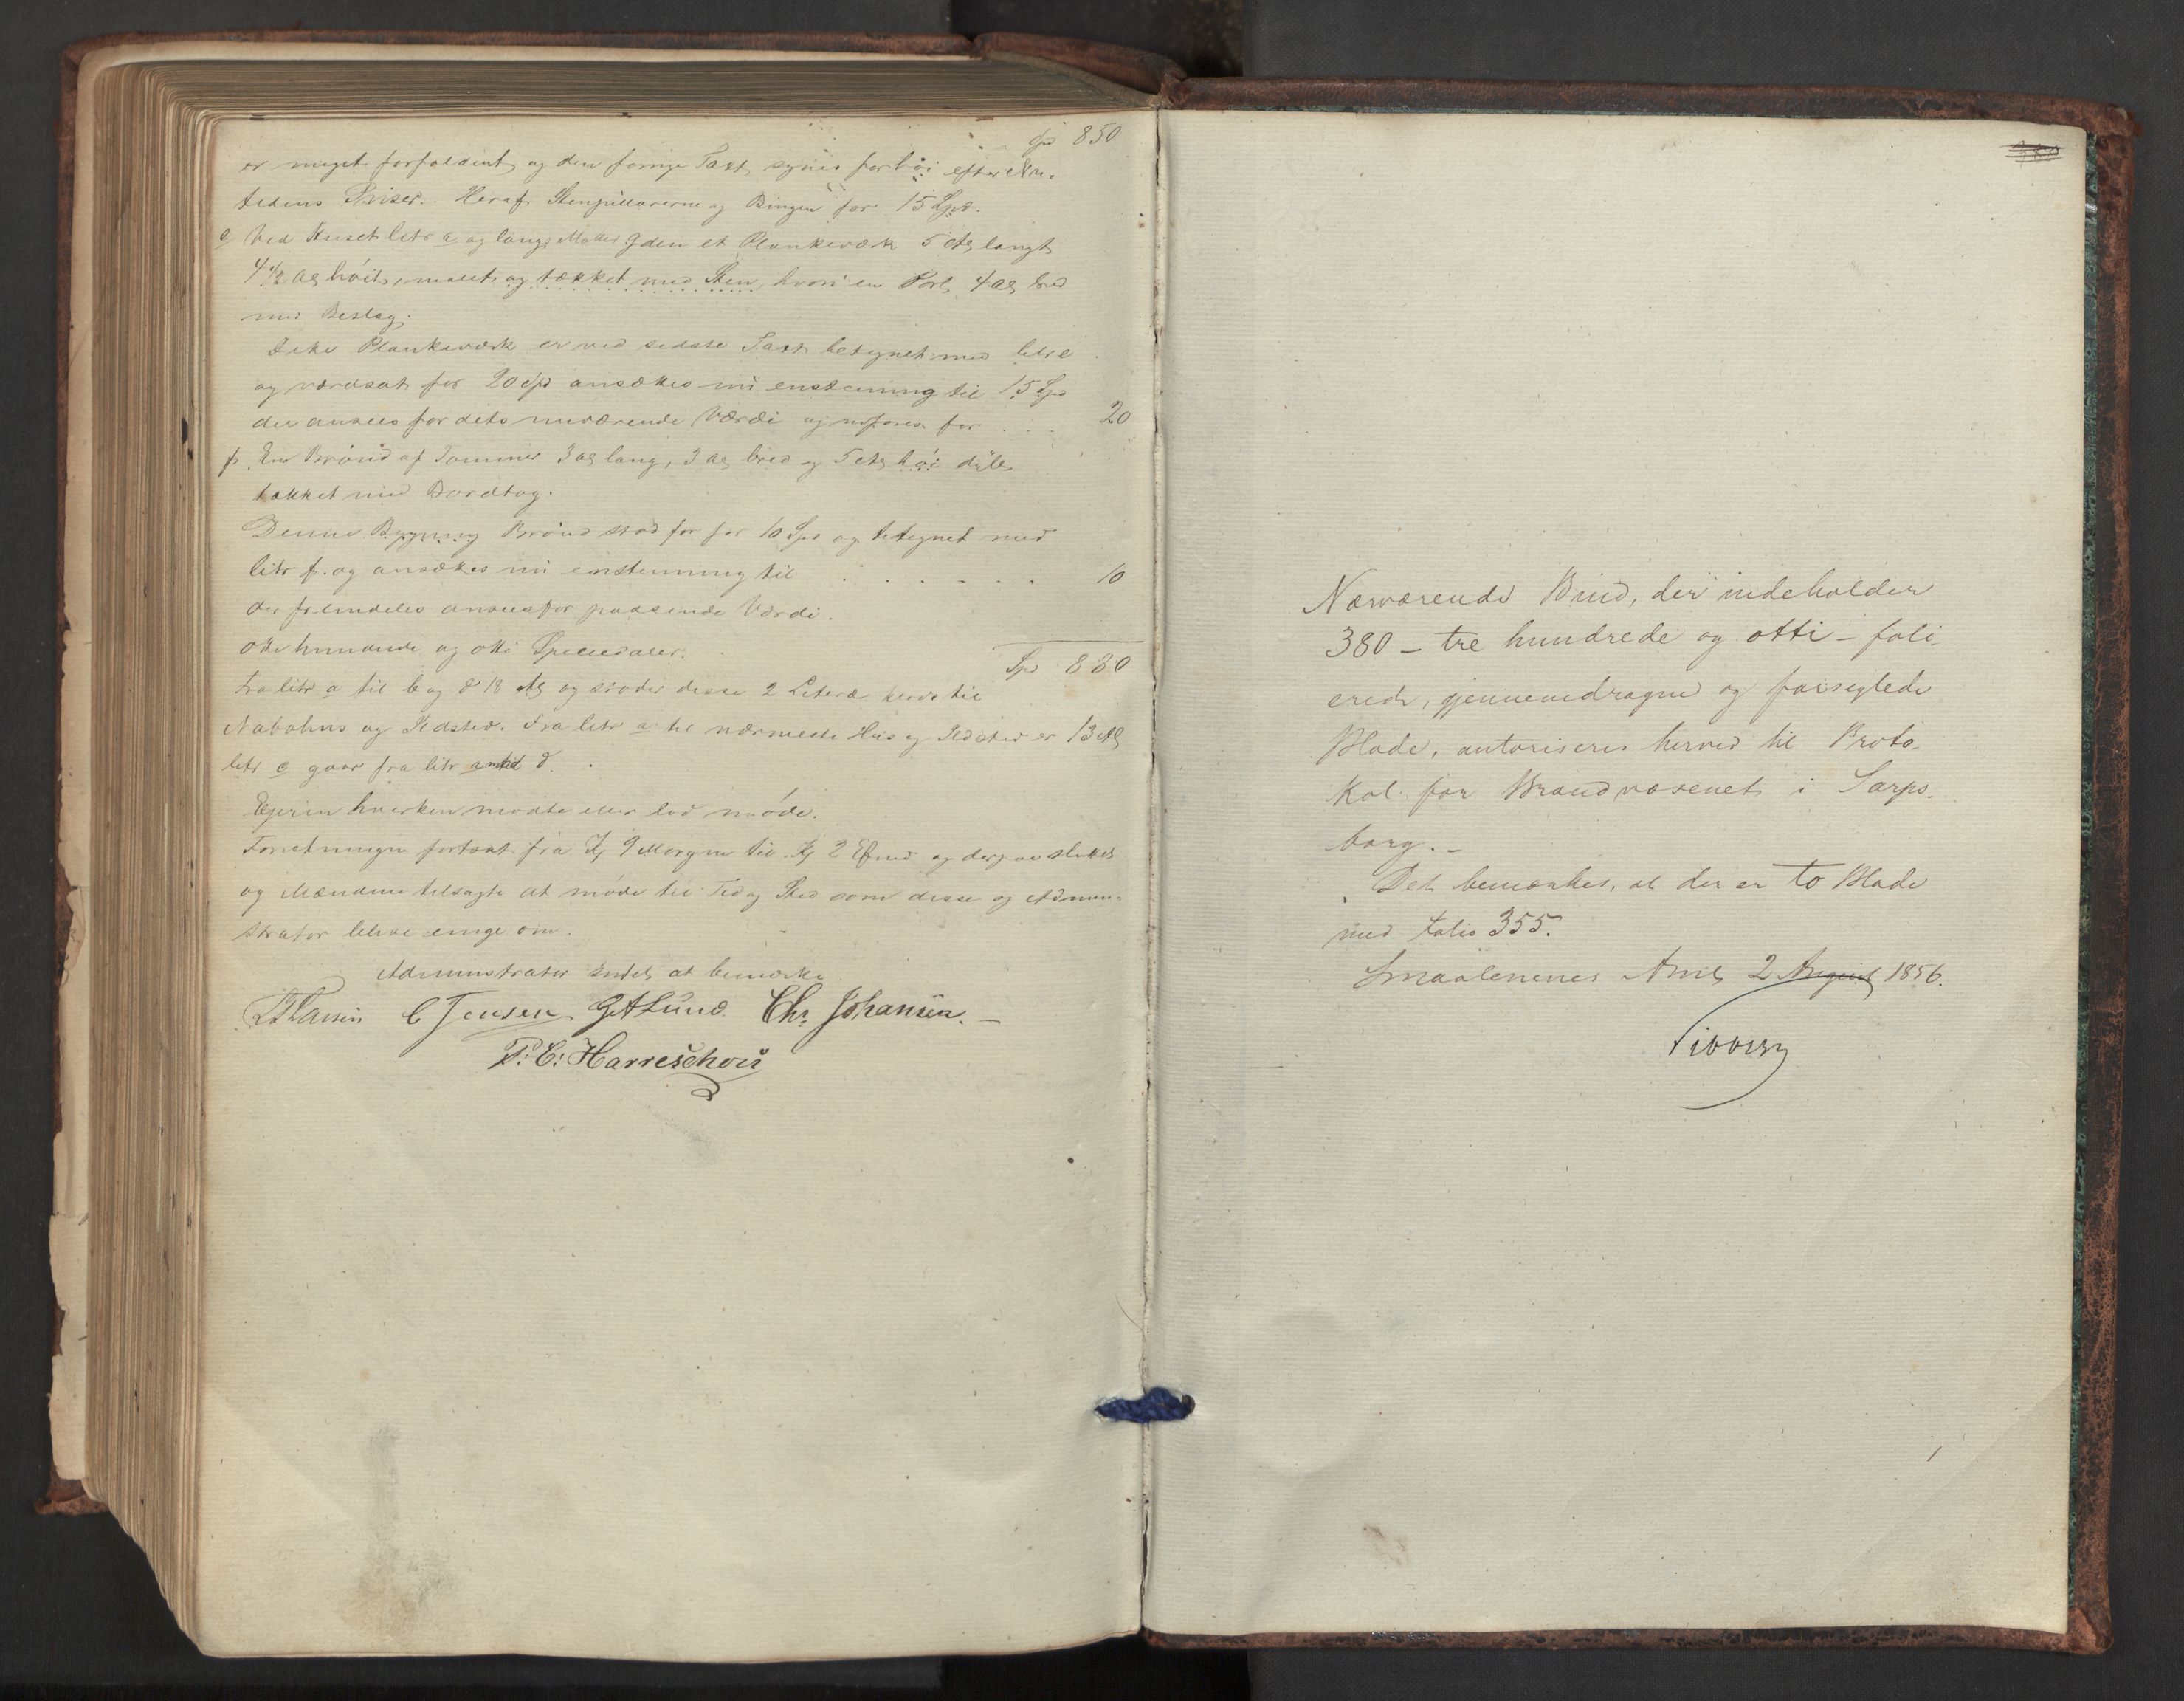 Spd 850
er meget forfaldent og den forrige Taxt synes for høi efter Nu-
tidens Priser. Heraf Stenpillarerne og Bingen for 15 Spd.
e Ved Huset litr a og langs Gaden et Plankeværk 5 Al langt
4 1/2 Al høit, malet og tækket med Sten, hvori en Port 4 Al bred
med Beslag.
Dette Plankeværk er ved sidste Taxt betegnet med litr e
og værdsat for 20 Spd ansættes nu enstemmig til 15 Spd
der ansees for dets nuværende Værdi og opføres for . . . 20
f. En Brønd af Tømmer 3 Al lang, 3 Al bred og 5 Al høi
tækket med Bordtag.
Denne Bygning Brønd stod før for 10 Spd og betegnet med
litr f. og ansættes nu enstemmig til . . . . . . . 10
der fremdeles ansees for passende Værdi.
Otte hundrede og otti Speciedaler. Spd 880
Fra litr a til b og d 18 Al og støder disse 2 Litera til
Nabohus og Ildsted. Fra litr a til nærmeste Hus og Ildsted er 13 Al
litr e gaar fra litr a til d.
Eierin hverken mødte eller lod møde.
Forretningen fortsat fra Kl 9 Morgen til Kl 2 Efmd og sluttet
og Mændene tilsagte at møde til Tid og Sted som disse og Admini-
strator blive enige om.
Administrator Intet at bemærke
C Jensen G A Lund. Chr Johansen. –
P: C: Harreschou
Nærværende Bind, der indeholder
380 – tre hundrede og otti – foli-
erede, gjennemdragne og forseglede
Blade, autoriseres herved til Proto-
kol for Brandvæsenet i Sarps-
borg. –
Det bemærkes, at der er to Blade
med folio 355.
Smaalenenes Amt 2 August 1856.
Sibbern